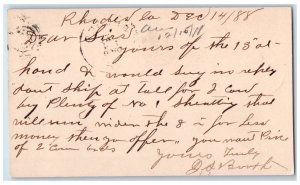 Rhodes Ia Dec 14/88
Dear Sirs
yours of the 13" at
hand I would say in reply
Don't ship at all for I can
buy Plenty of No 1 Sheathing that
will run wider the 8 in for less
money then you offer. you want Pine
of 2
yours Truly
Booth